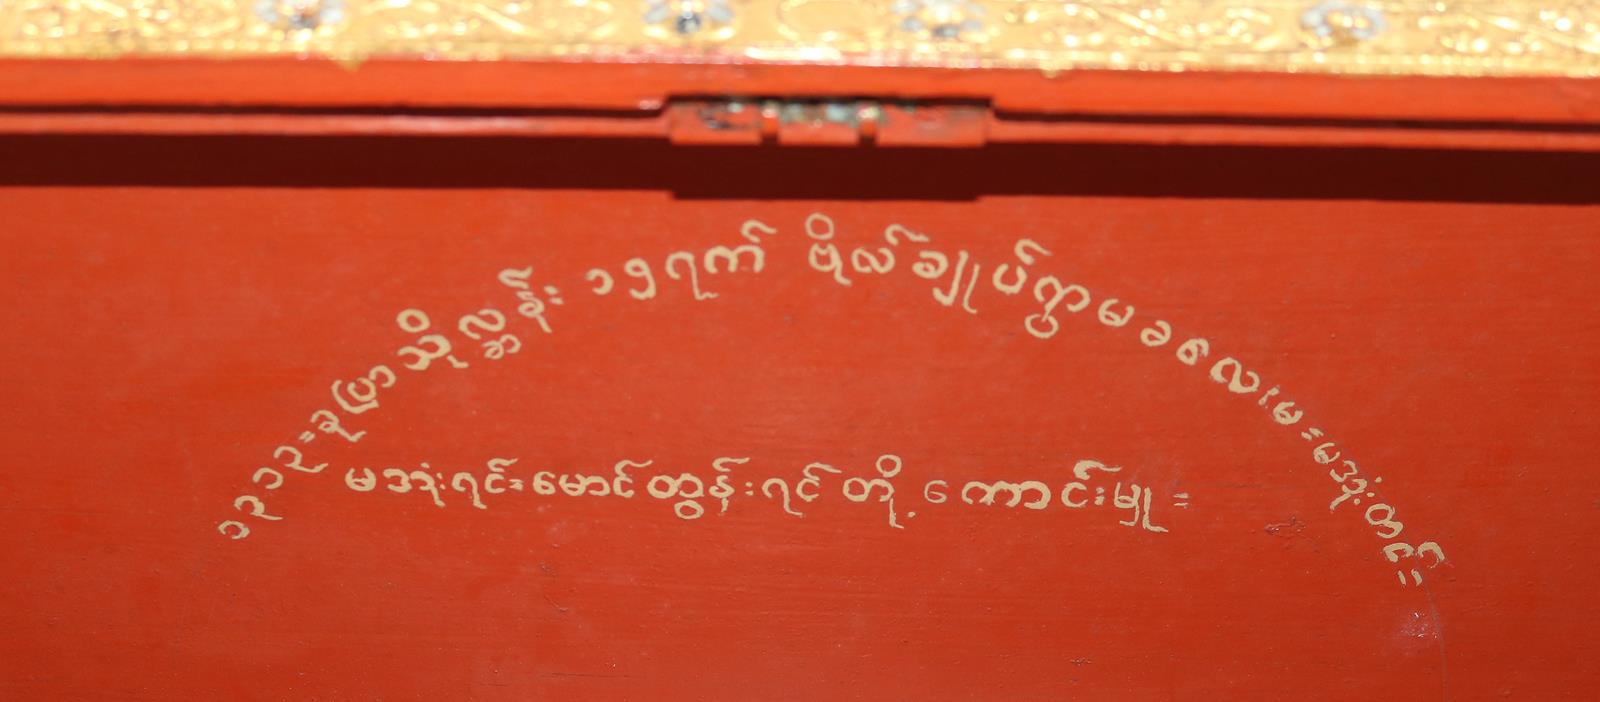 ၁၃၁၃=ခုပြာသိုလ္ဆန်း ၁၅ရက် ဗိုလ်ချုပ်ကွမခလေး၊မ=မအုံးတင်=
မအုံးရင်=မောင်တွန်းရင်တို့ ကောင်းမှု=